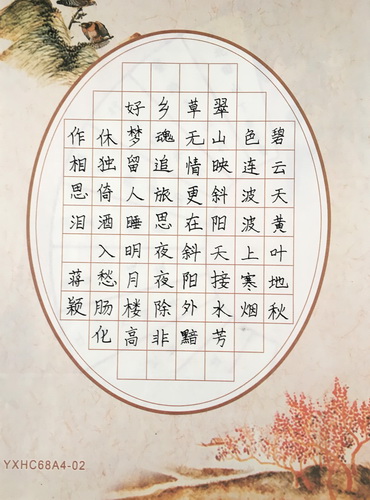 碧云天黄叶地秋
色连波波上寒烟
翠山映斜阳天接水芳
草无情更在斜阳外黯
乡魂追旅思夜夜除非
好梦留人睡明月楼高
休独倚酒入愁肠化
作相思泪 蒋颖
YXHC68A4-02